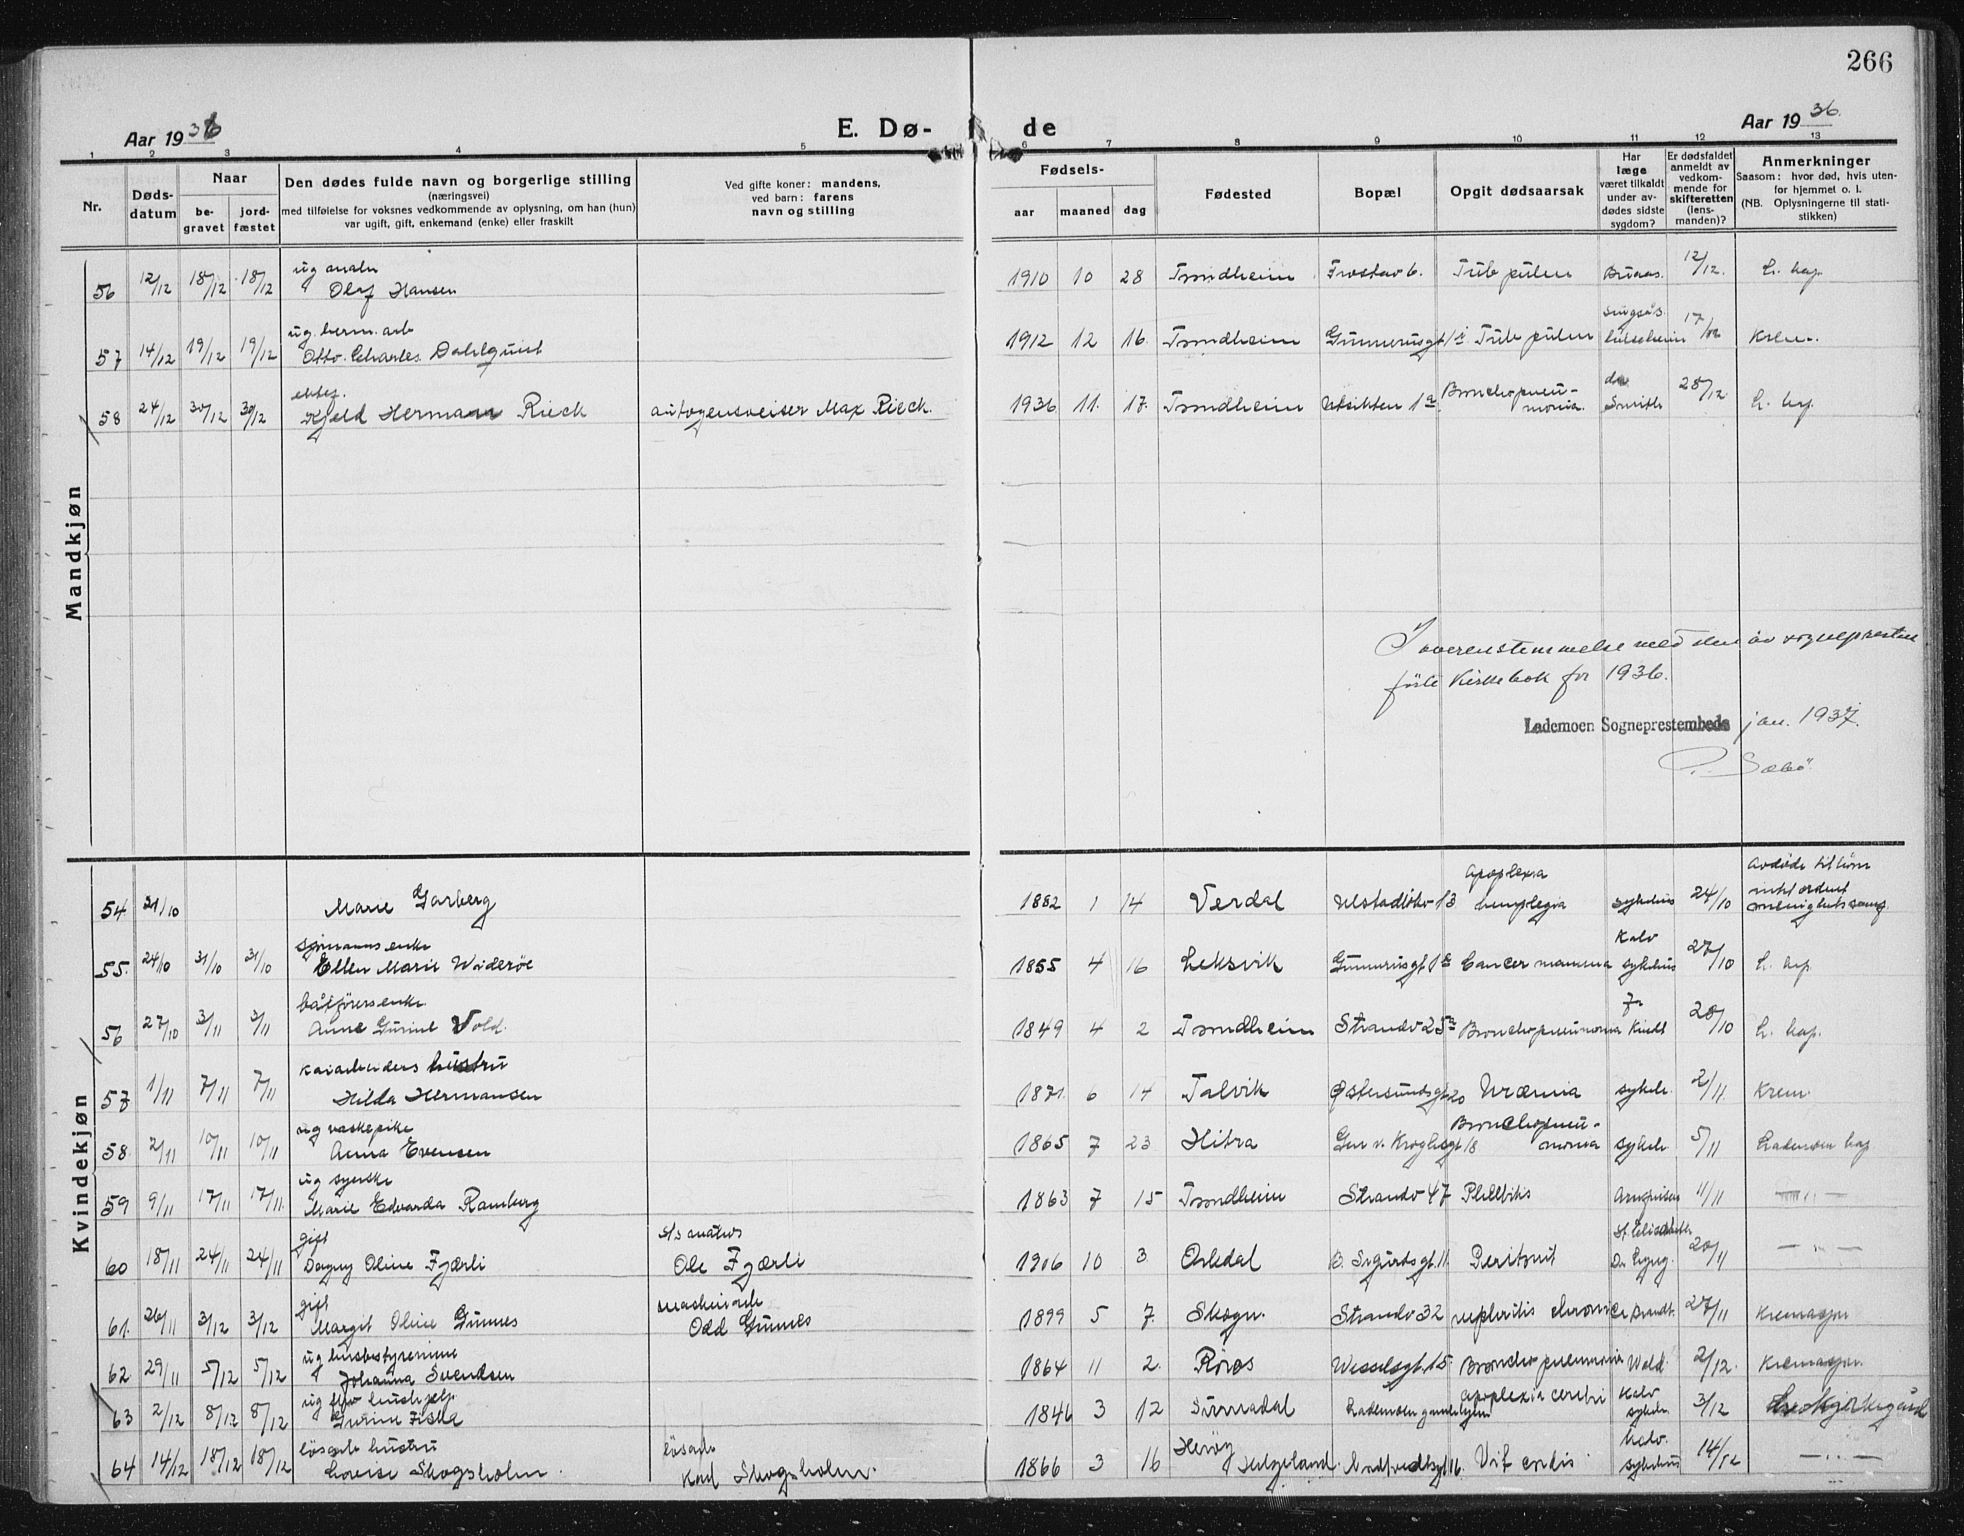 266
Aar 1936
E. Dø-
de
Aar 1936.
1 2 3 4 5 6 7 8 9 10 11 12 13
Nr.
Døds-
datum
Naar
be-
gravet
jord-
fæstet
Den dødes fulde navn og borgerlige stilling
(næringsvei)
med tilføielse for voksnes vedkommende av oplysning, om han (hun)
var ugift, gift, enkemand (enke) eller fraskilt
Ved gifte koner: mandens,
ved barn: farens
navn og stilling
Fødsels-
aar maaned dag
Fødested
Bopæl
Opgit dødsaarsak
Har
læge
været tilkaldt
under av-
dødes sidste
sygdom?
Er dødsfaldet
anmeldt av
vedkom-
mende for
skifteretten
(lens-
manden)?
Anmerkninger
Saasom: hvor død, hvis uten-
for hjemmet o. l.
(NB. Oplysningerne til stati-
stikken)
Mandkjøn
ug
56 12/12 18/12 18/12 Olaf Hansen 1910 10 28 Trondheim Frostav 6. Tub pulm 12/12. L. kap.
ug. herm. arb
57 14/12 19/12 19/12 Otto Charles Dahlquist 1912 12 16. Trondheim Gunnerusgt 1 Tub pulm 17/12 Krem.
ektef.
58 24/12 30/12 30/12 Kjeld Hermann Rieck autogensveiser Max Rieck. 1936 11. 17. Trondheim Utsikten 1a. Bronchopneu-
monia. dr Smith 28/12. L. kap.
I overenstemmelse med den av sognepresten
førte Kirkebok for 1936.
Lademoen Sogneprestembede jan. 1937.
P. Sæbö.
Kvindekjøn
54 21/10 Marie Garberg 1882 1 14 Verdal Ulstadløkv 13 Apoplexia
hemiplegia sykehus 24/10 Avdøde tilhörn
menighetssamf.
sjømanns enke
55. 24/10 31/10 31/10 Ellen Marie Widerøe 1855 4 16 Leksvik Gunnerusgt Cancer mamma sykehus 27/10 L. kap.
båtførers enke
56 27/10 3/11 3/11 Anne Gurine Vold. 1849 4 2 Trondheim Strandv 25a Bronchopneumonia 28/10 L. kap.
kaiarbeiders hustru
57 1/11 7/11 7/11 Hilda Hermansen 1871. 6 14 Talvik Østersundsgt 20 Uræmia sykeh. 2/11. Krem.
ug vaskepike
58. 2/11 10/11 10/11 Anna Evensen 1865 7 23 Hitra Gen v. Kroghsgt 18 Bronchopneu-
monia sykeh. 5/11 Lademoen kap
ug syerske
59 9/11 17/11 17/11 Marie Edvarda Ramberg 1863 7 15 Trondheim Strandv 47 Phlebitis 11/11 —"—
gift
60 18/11 24/11 24/11 Dagny Oline Fjærli Ole Fjærli 1906 10 3 Orkdal B. Sigurdsgt 11. Peritonit St Elisabeth 20/11 —"—
gift
61. 26/11 3/12 3/12 Margit Oline Gunnes maskinarb
Odd Gunnes 1899 5 7. Skogn. Strandv 32 nephritis chronic 27/11 Kremasjon
ug husbestyrerinne
62 29/11 5/12 5/12 Johanna Svendsen 1864 11 2. Röros Wesselsgt. 15. Bronchopneumonia Wold. 2/12. Kremasjon.
63 2/12 8/12 8/12 Gurine Fiska 1846 3 12 Surnadal Lademoen gamlehjem apoplexia cerebri sykeh. 3/12
løsarb hustru
64 14/12 18/12 18/12 Lovise Skogsholm. løsarb
Karl Skogsholm. 1866 3 16 Herøy
Helgeland. Vit cordis sykehus 14/12 —"—